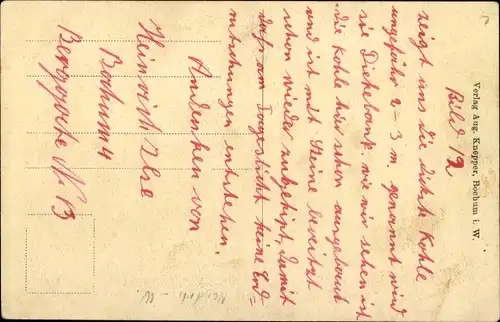 Bild 12
zeigt uns die dickste Kohle
ungefähr 2-3 m. genannt wird
sie Dickebank. wie wir sehen ist
die Kohle hier schon ausgebaut
und ist mit Steine bereitst
schon wieder zugekippt, damit
dass am Tageslicht keine Erd=
rutschungen entstehen.
Andenken von
Heinrich
Bochum 4
Berggate N. 13
Verlag Aug. Knepper, Bochum i. W.